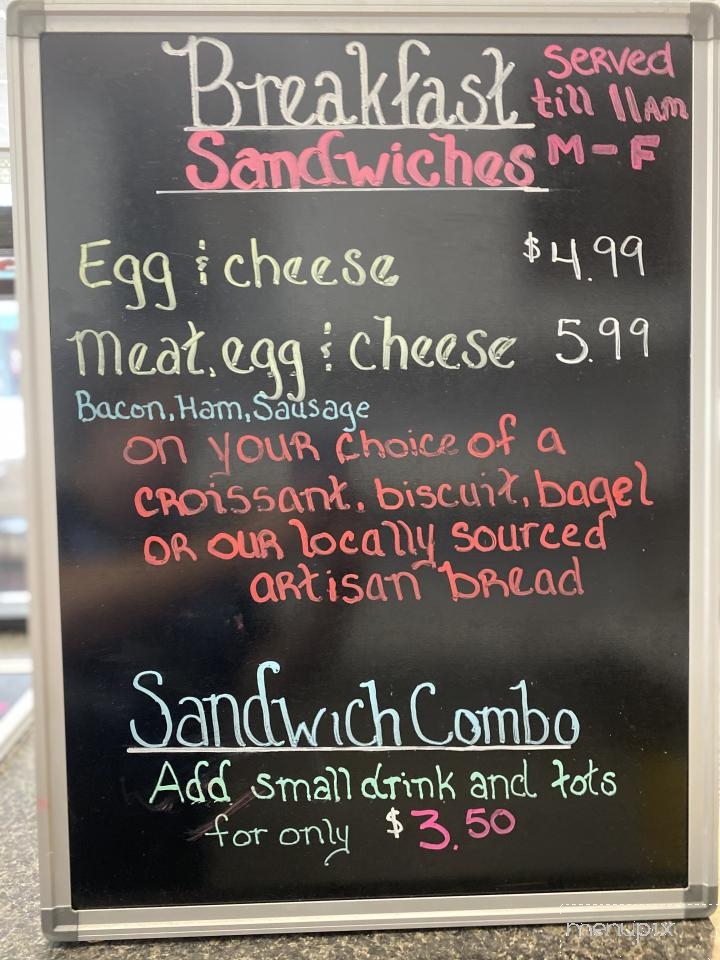 Breakfast
Sandwiches
SERVED
till 11AM
M-F
Egg & cheese $4.99
Meat, egg & cheese 5.99
Bacon, Ham, Sausage
on your choice of a
croissant, biscuit, bagel
or our locally sourced
artisan bread
Sandwich Combo
Add small drink and tots
for only $3.50
menupix